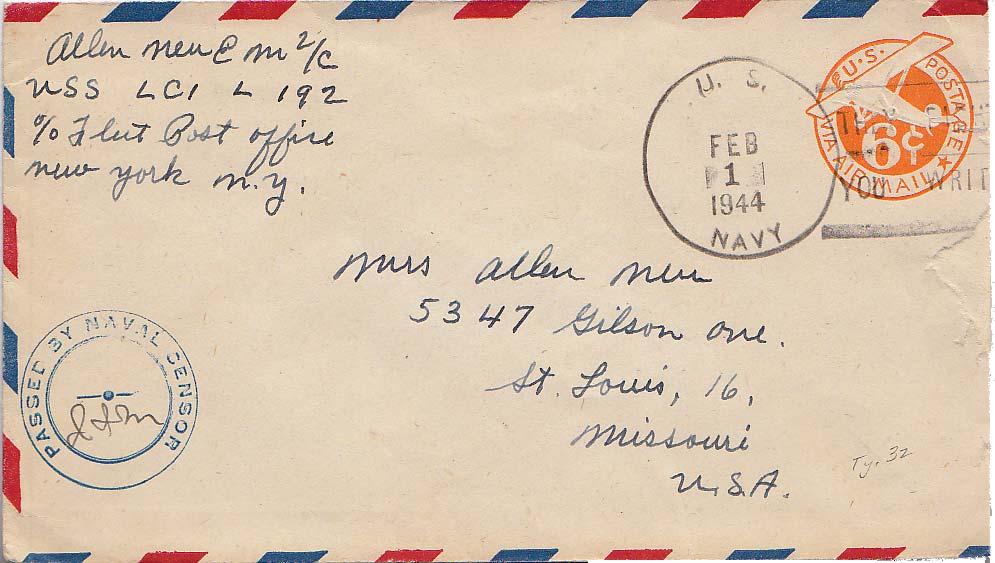 Allen New E M 2/c
USS LCI L 192
% Fleet Post office
new york n.y.
U. S.
FEB
1
1944
NAVY
U.S. POSTAGE
6¢
VIA AIR MAIL
YOU WRIT
Mrs Allen New
5347 Gilson ave.
St. Louis, 16,
Missouri
U.S.A.
PASSED BY NAVAL CENSOR
Ty. 32